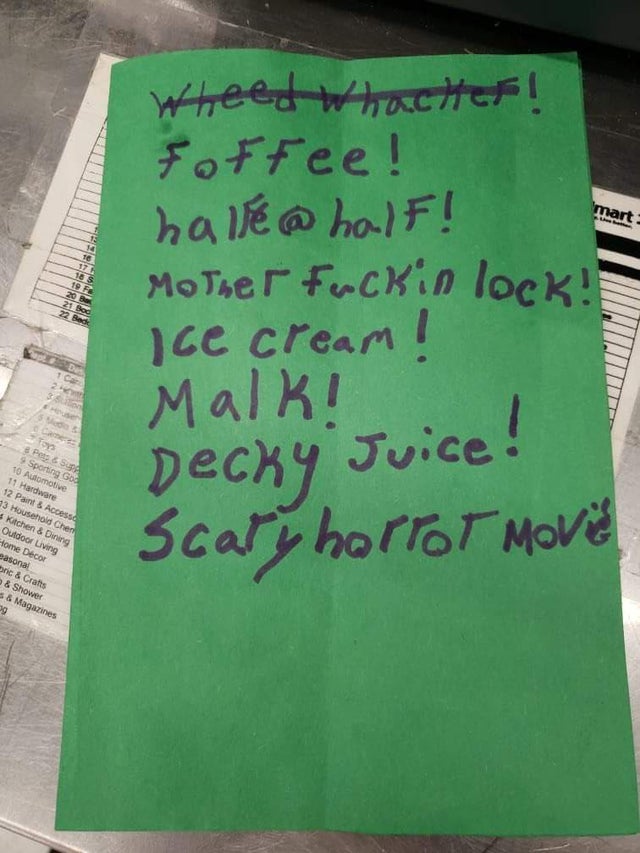 Wheed Whacker!
Foffee!
halfe @ half!
MoTher Fuckin lock!
Ice cream!
Malk!
Decky Juice!
Scary horror Movie
mart
14
16
17
18
19
20
21
22
1
2
Toys
8 Pets &
9 Sporting
10 Automotive
11 Hardware
12 Paint & Access
13 Household Chem
Kitchen & Dining
Outdoor Living
Home Décor
easonal
bric & Crafts
& Shower
& Magazines